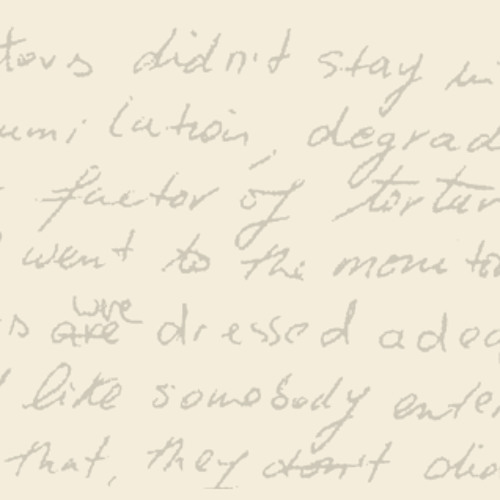 tors didn't stay in
umiliation, degrad
factor of tortur
went to the monito
s were are dressed adeq
like somebody enter
that, they don't did